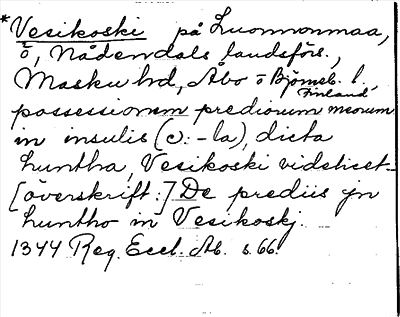 *Vesikoski på Luonnonmaa,
ö, Nådendals landsförs.,
Masku hd, Åbo o Björneb. l.
Finland
possessionum prediorum meorum
in insulis (ɔ: -la), dicta
huntha, Vesikoski videlicet
[överskrift:] De prediis yn
huntho in Vesikoskj.
1344 Reg. Eccl. Ab. s. 66.